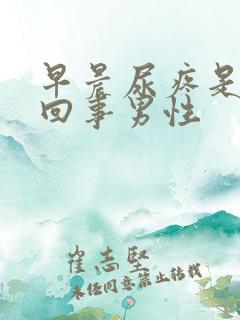 早晨尿疼是
回事男性
崔志坚
未经同意禁止转载